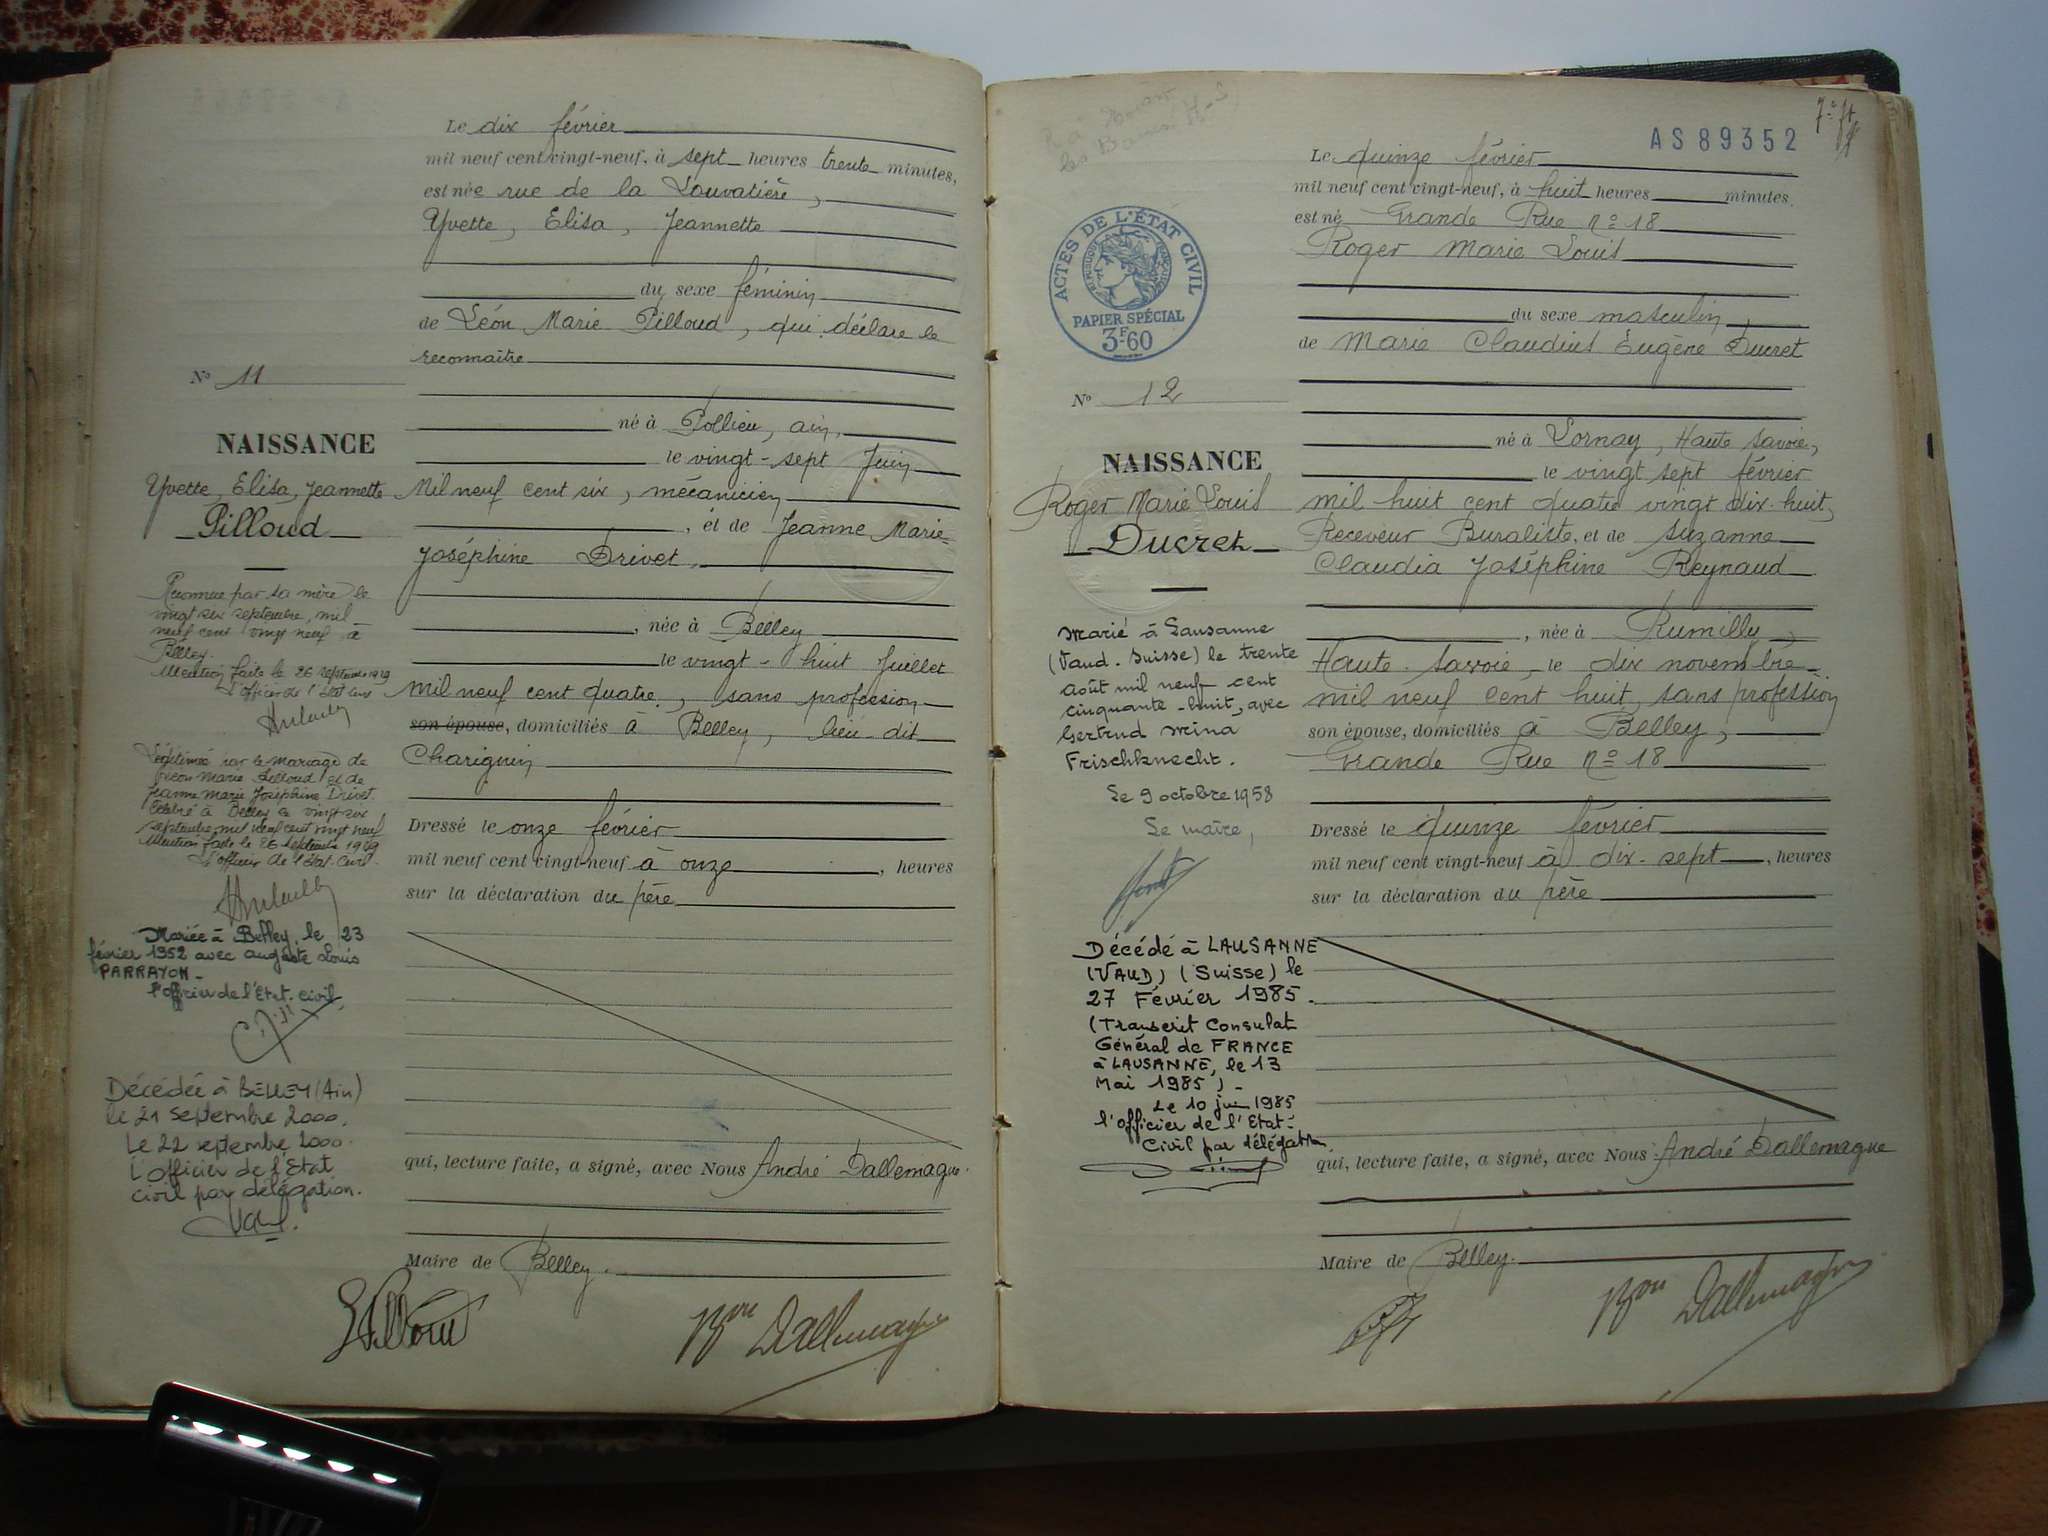 Le dix février
mil neuf cent vingt-neuf, à sept heures trente minutes,
est née rue de la Louvatière,
Yvette, Elisa, Jeannette
du sexe féminin
de Léon Marie Pilloud, qui déclare le
reconnaître
né à Pollieu, ain,
le vingt-sept Juin
Mil neuf cent six, mécanicien
, et de Jeanne Marie-
Joséphine Drivet,
, née à Belley
le vingt-huit Juillet
mil neuf cent quatre, sans profession
son épouse, domiciliés à Belley, lieu dit
Charignin
Dressé le onze février
mil neuf cent vingt-neuf à onze, heures
sur la déclaration du père
qui, lecture faite, a signé, avec Nous André Dallemagne.
Maire de Belley.
Pilloud
Bon Dallemagne
No 11
NAISSANCE
Yvette, Elisa, Jeannette
Pilloud
Reconnue par sa mère le
vingt six septembre, mil
neuf cent vingt neuf à
Belley.
Mention faite le 26 septembre 1929
L'officier de l'Etat Civil
Légitimée par le mariage de
Léon Marie Pilloud et de
Jeanne Marie Joséphine Drivet
célébré à Belley le vingt six
septembre mil neuf cent vingt neuf
Mention faite le 26 septembre 1929
L'officier de l'Etat-Civil.
Mariée à Belley, le 23
février 1952 avec auguste Louis
PARRAYON-
l'officier de l'Etat-civil,
Décédée à BELLEY (Ain)
le 21 septembre 2000.
Le 22 septembre 2000.
L'officier de l'Etat
civil par délégation.
AS 89352
Le quinze février
mil neuf cent vingt-neuf, à huit heures minutes.
est né Grande Rue no 18
Roger Marie Louis
du sexe masculin
de Marie Claudius Eugène Ducret
né à Lornay, Haute Savoie,
le vingt sept février
mil huit cent quatre vingt dix-huit,
Receveur Buraliste, et de Suzanne
Claudia Joséphine Reynaud
, née à Rumilly,
Haute-Savoie, le dix novembre
mil neuf cent huit, sans profession
son épouse, domiciliés à Belley,
Grande Rue no 18
Dressé le quinze février
mil neuf cent vingt-neuf à dix-sept, heures
sur la déclaration du père
qui, lecture faite, a signé, avec Nous André Dallemagne
Maire de Belley.
Bon Dallemagne
ACTES DE L'ÉTAT CIVIL
RÉPUBLIQUE FRANÇAISE
PAPIER SPÉCIAL
3F60
No 12
NAISSANCE
Roger Marie Louis
Ducret
Marié à Lausanne
(Vaud. Suisse) le trente
août mil neuf cent
cinquante-huit, avec
Gertrud Mina
Frischknecht.
Le 9 octobre 1958
Le maire,
Décédé à LAUSANNE
(VAUD) (Suisse) le
27 Février 1985.
(Transcrit Consulat
Général de FRANCE
à LAUSANNE, le 13
Mai 1985)-
Le 10 juin 1985
l'officier de l'Etat-
Civil par délégation